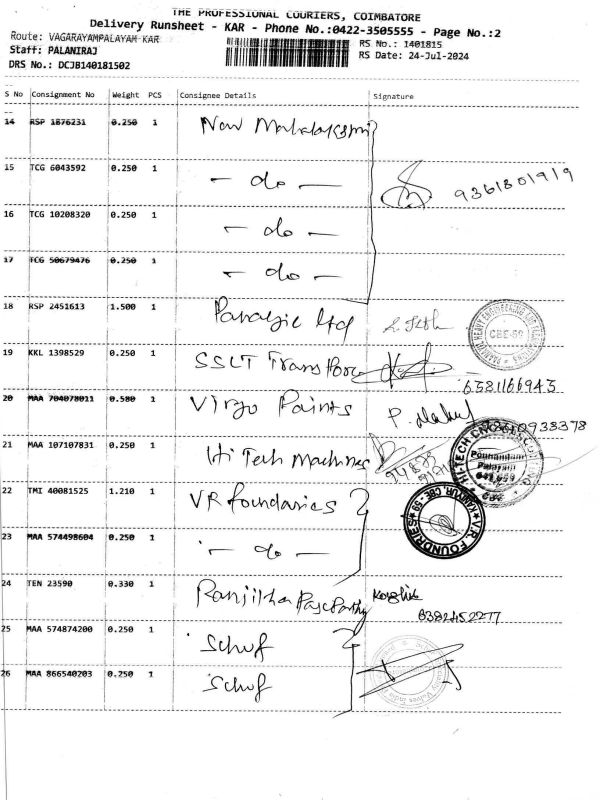 THE PROFESSIONAL COURIERS, COIMBATORE
Delivery Runsheet - KAR - Phone No.:0422-3505555 - Page No.:2
Route: VAGARAYAMPALAYAM KAR
RS No.: 1401815
Staff: PALANIRAJ
RS Date: 24-Jul-2024
DRS No.: DCJB140181502
S No Consignment No Weight PCS Consignee Details Signature
14 RSP 1876231 0.250 1 New Mahalakshmi
15 TCG 6043592 0.250 1 - do - 9361801919
16 TCG 10208320 0.250 1 - do -
17 TCG 50679476 0.250 1 - do -
18 RSP 2451613 1.500 1 ltd
CBE-62
19 KKL 1398529 0.250 1 SSLT Transpore
6381166945
20 MAA 704078011 0.580 1 Virgo Paints P.
21 MAA 107107831 0.250 1 Hi Tech Machines
HI-TECH
Palayam
CBE
22 TMI 40081525 1.210 1 VR foundaries
V.R. FOUNDRIES KANIYUR, CBE - 59
23 MAA 574498604 0.250 1 - do -
24 TEN 23590 0.330 1 Ranjitha
6382452277
25 MAA 574874200 0.250 1 Schuf
26 MAA 866540203 0.250 1 Schuf